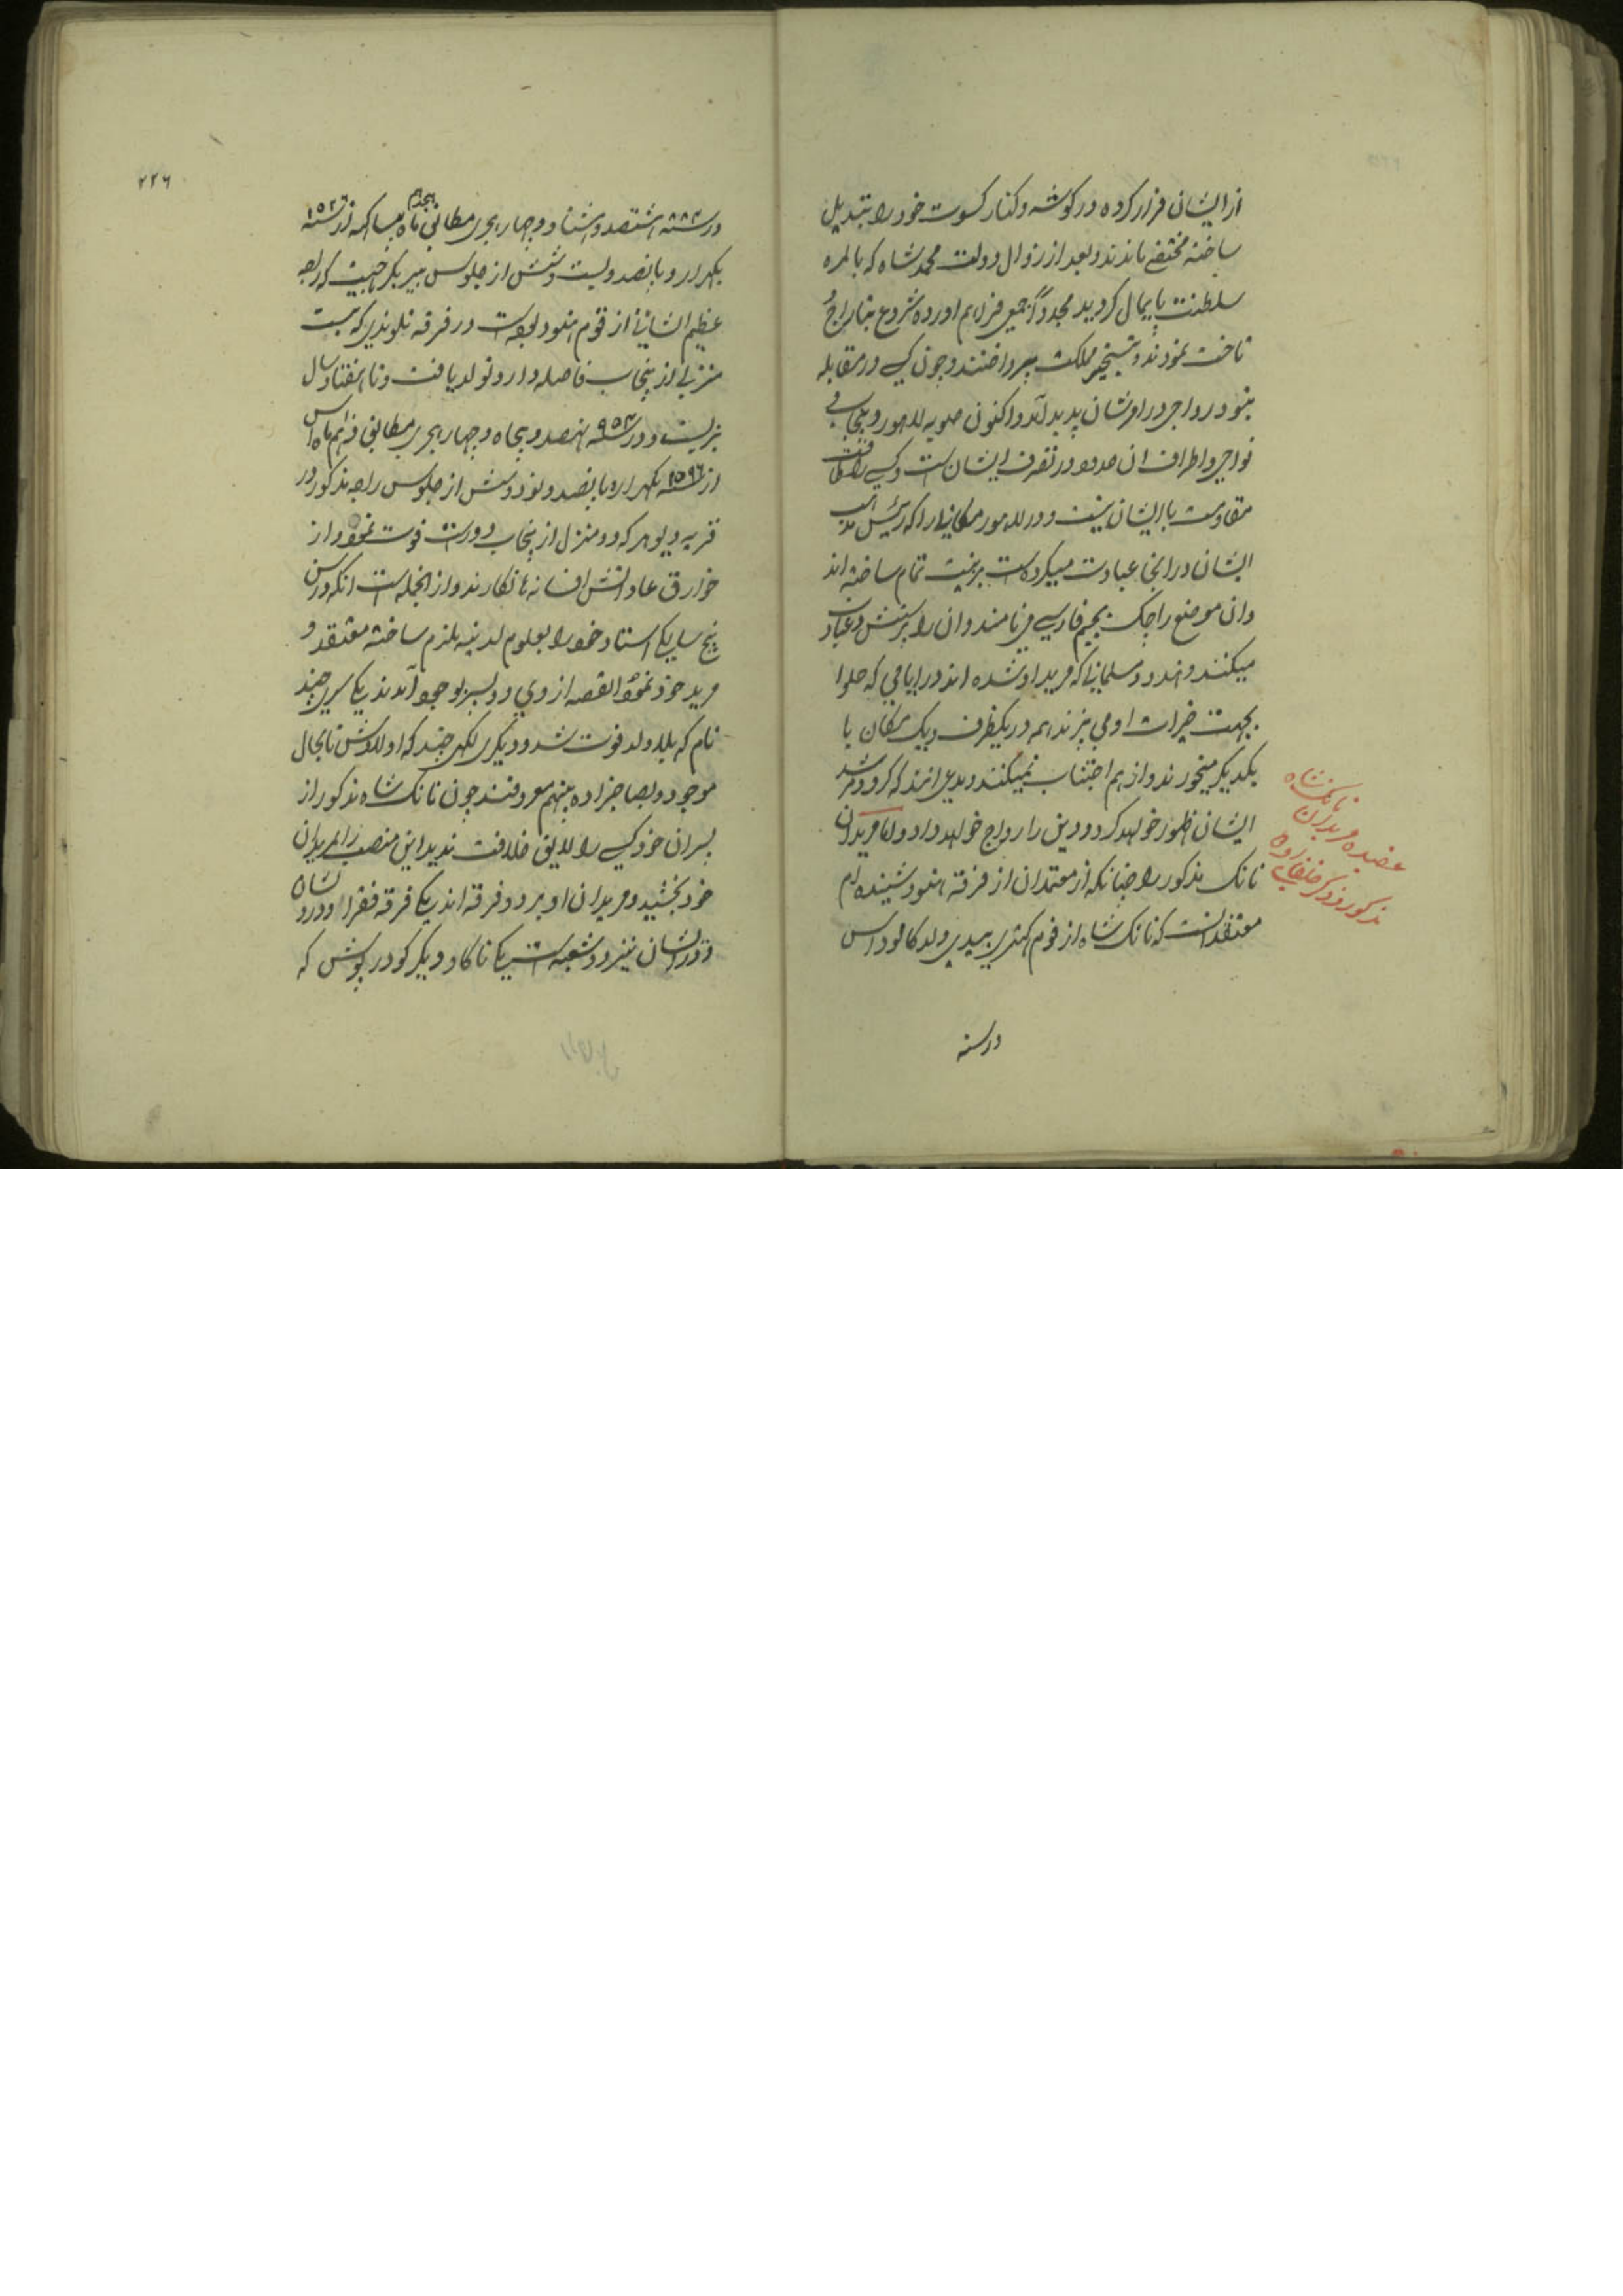 از ایشان فرار کرده در کوشه و کنار کسوت خود را بتبدیل
ساخته مختفی ماندند و بعد از زوال دولت محمد شاه که بالمره
سلطنت پایمال کردید مجدداً جمعی فراهم اورده شروع بتاراج و
تاخت نمودند و بتسخیر مملکت پرداختند و چون کسی در مقابله
نبود رواجی در امرشان پدید آمد و اکنون صوبه لاهور و پنجاب و
نواحی و اطراف ان حدود در تصرف ایشان است و کسی را طاقت
مقاومت با ایشان نیست و در لاهور مکانی را که رئیس مذهب
ایشان در انجا عبادت میکرده است بزینت تمام ساخته اند
وان موضع را چک بجیم فارسی می نامند وان را پرستش و عبادت
میکنند و هندو و مسلمانی که مرید او شده اند در ایامی که حلوا
بجهت خیرات او می پزند همه در یکظرف و یک مکان با
یکدیکر میخورند و از هم اجتناب نمیکنند و مدعی اند که کرو و مرشد
ایشان ظهور خواهد کرد و دین را رواج خواهد داد و اما مریدان
نانک مذکور را چنانکه از معتمدان از فرقه هنود شنیده ام
معتقد انست که نانک شاه از قوم کهتری بیدی ولد کالو داس
عقیده مریدان نانک شاه
مذکور و ذکر خلفای او
در سنه
۲۲۶
در سنه ۸۸۴ هشتصد و هشتاد و چهار هجری مطابق هجدهم ماه بیساکهه از سنه ۱۵۲۶
یکهزار و پانصد و بیست و شش از جلوس بیر بکرماجیت که راجه
عظیم الشانی از قوم هنود بوده است در فرقه تلوندی که بیست
منزلی از پنجاب فاصله دارد تولد یافت و تا هفتاد سال
بزیست و در ۹۵۴ نهصد و پنجاه و چهار هجری مطابق دهم ماه اسا
از ۱۵۹۶ یکهزار و پانصد و نود و شش از جلوس راجه مذکور در
قریه دیوهر که دو منزل از پنجاب دور است فوت نمود و از
خوارق عاداتش افسانه ها نکارند و از انجمله است انکه در سن
پنج سالکی استاد خود را بعلوم لدنیه ملزم ساخته معتقد و
مرید خود نمود القصه از وی دو پسر بوجود آمدند یکی سری چند
نام که بلا ولد فوت شد و دیکری لکهی چند که اولادش تا بحال
موجود و بصاحبزاده بینهم معروفند چون نانک شاه مذکور از
پسران خود کسی را لایق خلافت ندید این منصب را بمریدان
خود بخشید و مریدان او بر دو فرقه اند یکی فرقه فقرا و درویشان
و درایشان نیز دو شعبه است یکی ناکا و دیکر کودر پوش که